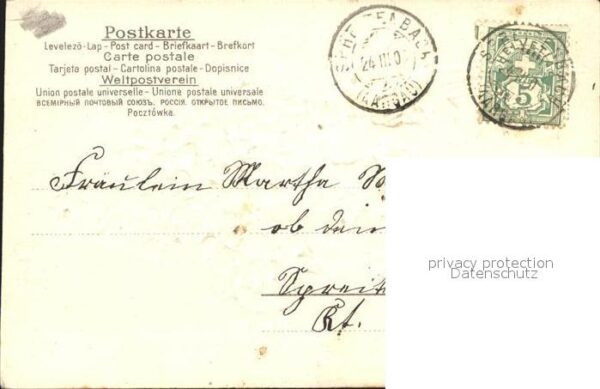 Postkarte
Levelező-Lap - Post card - Briefkaart - Brefkort
Carte postale
Tarjeta postal - Cartolina postale - Dopisnice
Weltpostverein
Union postale universelle - Unione postale universale
ВСЕМІРНЫЙ ПОЧТОВЫЙ СОЮЗЪ. РОССІЯ. ОТКРЫТОЕ ПИСЬМО.
Pocztówka.
24 III 0
(AARGAU)
HELVETIA
5
Fräulein Martha
ob den
privacy protection
Datenschutz
Spreit
Kt.